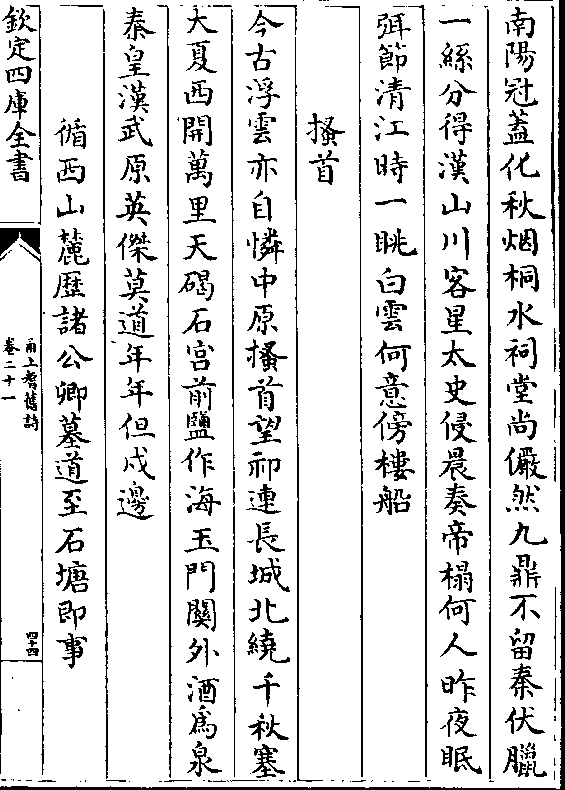 南陽冠蓋化秋烟桐水祠堂尚儼然九鼎不留秦伏臘
一絲分得漢山川客星太史侵晨奏帝榻何人昨夜眠
弭節清江時一眺白雲何意傍樓船
搔首
今古浮雲亦自憐中原搔首望祁連長城北繞千秋塞
大夏西開萬里天碣石宫前鹽作海玉門關外酒為泉
秦皇漢武原英傑莫道年年但戍邊
循西山麓歴諸公卿墓道至石塘即事
欽定四庫全書
甬上耆舊詩
卷二十一
四十四